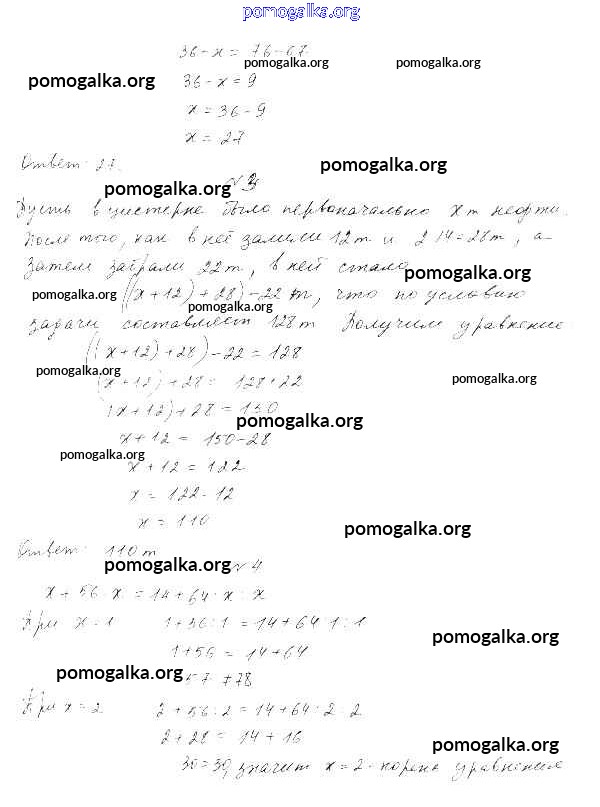 pomogalka.org
36-x = 76-67
pomogalka.org pomogalka.org
pomogalka.org 36-x = 9
x = 36-9
x = 27
Ответ: 27. pomogalka.org
pomogalka.org №3
Пусть в цистерне было первоначально x т нефти.
После того, как в неё залили 12 т и 2·14=28 т, а
затем забрали 22 т, в ней стало pomogalka.org
pomogalka.org ((x+12)+28)-22 т, что по условию
pomogalka.org
задачи составляет 128 т Получим уравнение
((x+12)+28)-22 = 128
pomogalka.org
(x+12)+28 = 128+22 pomogalka.org
(x+12)+28 = 150
pomogalka.org
x+12 = 150-28
pomogalka.org
x+12 = 122
x = 122-12
x = 110 pomogalka.org
Ответ: 110 т
pomogalka.org №4
x + 56 : x = 14 + 64 : x : x
При x = 1 1+56:1 = 14+64:1:1
pomogalka.org
1+56 = 14+64
pomogalka.org 57 ≠ 78
При x = 2 2+56:2 = 14+64:2:2
2+28 = 14+16
pomogalka.org
30=30, значит x=2 - корень уравнения